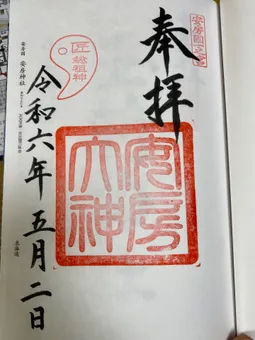 安房國一之宮
奉拝
安房大神
匠
総祖神
安房國 安房神社
令和六年五月二日